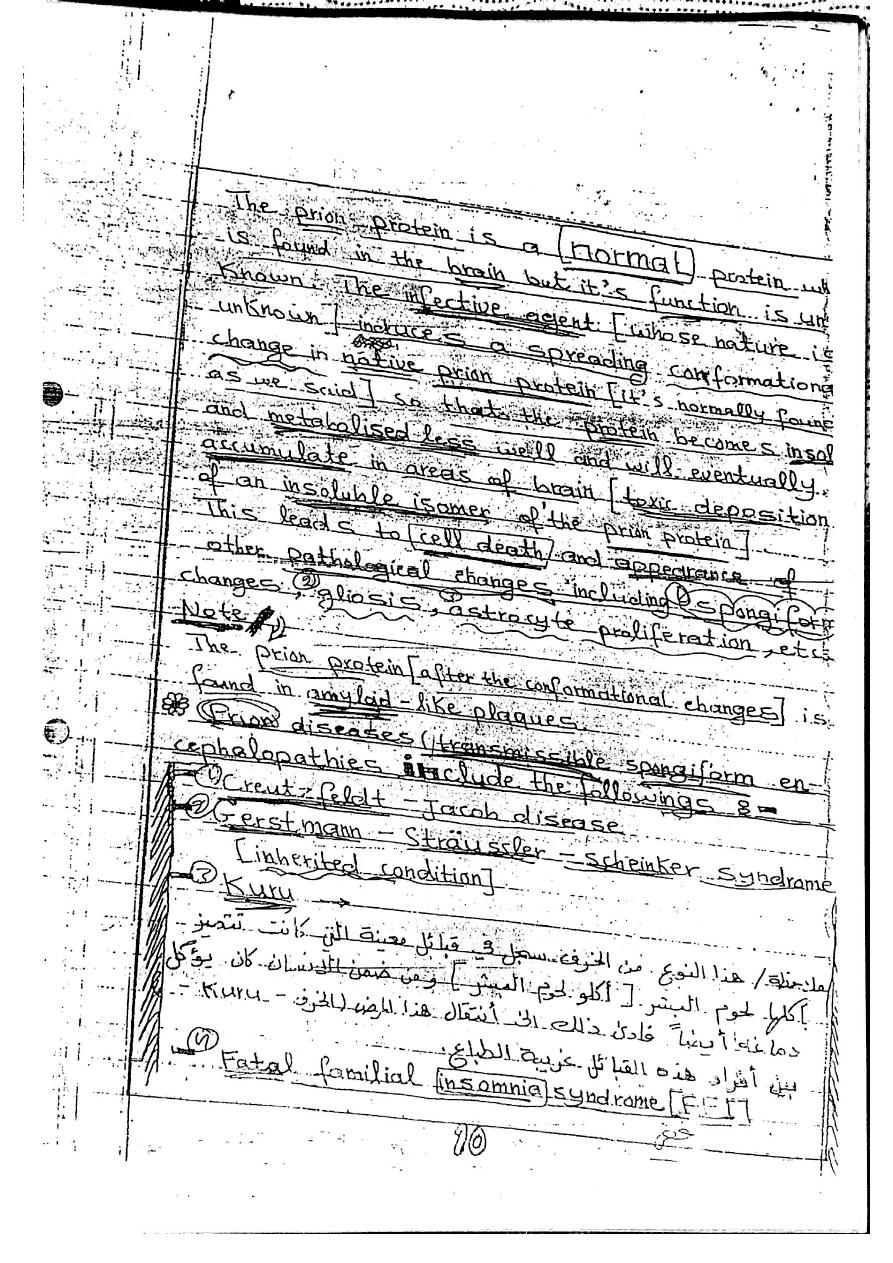 The prion protein is a normal protein wh
is found in the brain but it's function is un
known. The infective agent [whose nature is
unknown] induces a spreading conformationa
change in native prion protein [it's normally foune
as we said] so thats the protein becomes insol
and metabolised less well and will eventually
accumulate in areas of brain [toxic deposition
of an insoluble isomer of the prion protein]
This leads to cell death and appearance of
other pathological changes including ① spongiform
changes, ② gliasis, ③ astrocyte proliferation, etc
Note
The prion protein [after the conformational changes] is
found in amylad-like plaques.
Prion diseases (transmissible spongiform en-
cephalopathies include the followings :-
① Creutzfeldt - Jacob disease
② Gerstmann - Sträussler - Scheinker Syndrome
[inherited condition]
③ Kuru →
ملاحظة / هذا النوع من الخرف سجل في قبائل معينة التي كانت تتميز
بأكلها لحوم البشر [أكلو لحوم البشر] ومن ضمن الإنسان كان يؤكل
دماغه أيضاً فأدى ذلك الى أنتقال هذا المرض (الخرف - Kuru -
بين أفراد هذه القبائل غريبة الطباع.
④ Fatal familial insomnia syndrome [FFI]
10